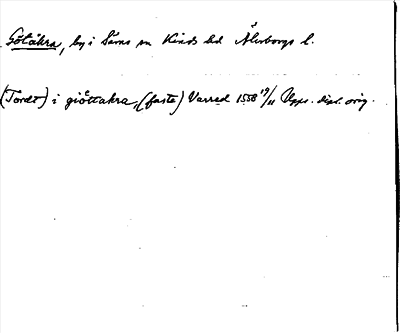 Götåkra, by i Säms sn Kinds hd Älvsborgs l.
(Tordt) i giöttakra, (faste) Varred 1558 19/11 Upps. dipl. orig.